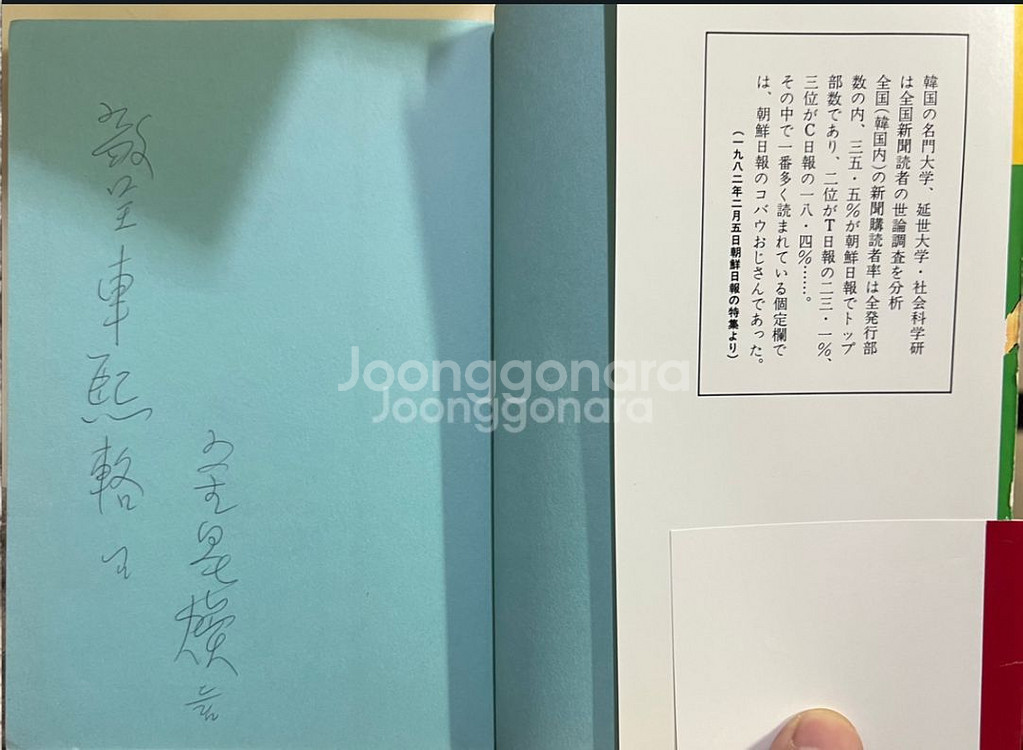 敬呈車熙輅
金星煥
韓国の名門大学、延世大学・社会科学研
は全国新聞読者の世論調査を分析
全国(韓国内)の新聞購読者率は全発行部
数の内、三五・五%が朝鮮日報でトップ
部数であり、二位がT日報の二三・一%、
三位がC日報の一八・四%……。
その中で一番多く読まれている個定欄で
は、朝鮮日報のコバウおじさんであった。
(一九八二年二月五日朝鮮日報の特集より)
Joonggonara
Joonggonara